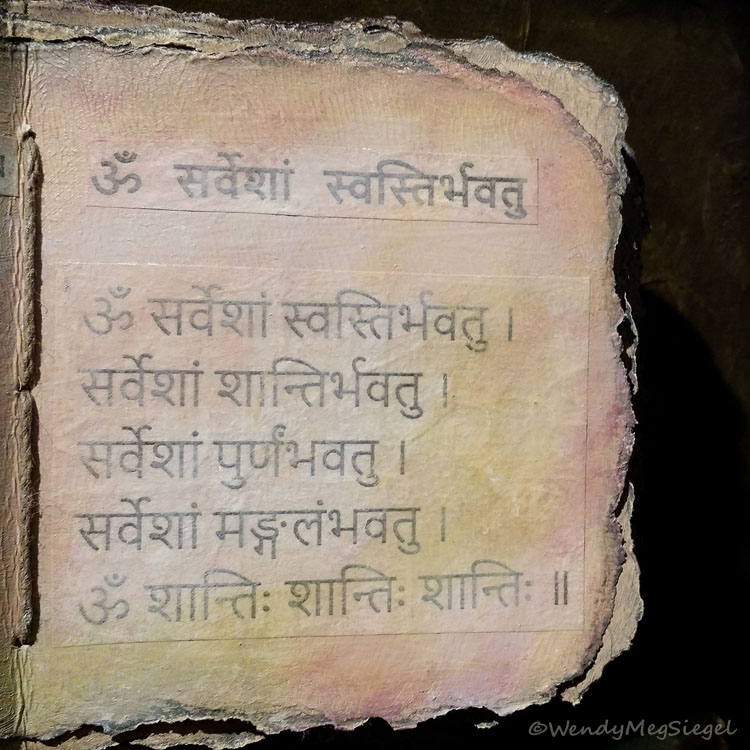 ॐ सर्वेशां स्वस्तिर्भवतु
ॐ सर्वेशां स्वस्तिर्भवतु ।
सर्वेशां शान्तिर्भवतु ।
सर्वेशां पुर्णंभवतु ।
सर्वेशां मङ्गलंभवतु ।
ॐ शान्तिः शान्तिः शान्तिः ॥
©WendyMegSiegel